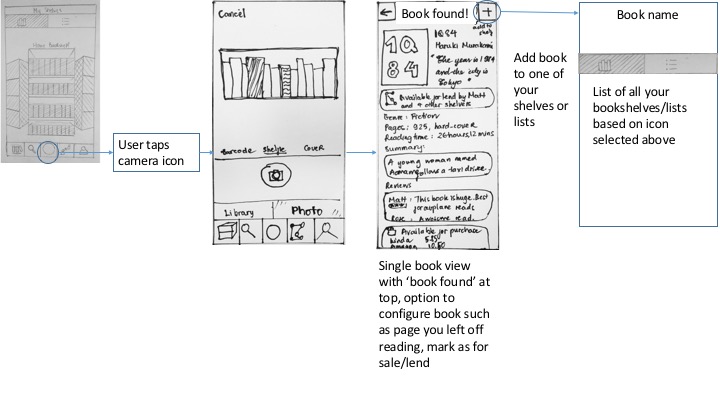 My Shelves
User taps
camera icon
Cancel
Barcode Shelfie Cover
Library Photo
Book found!
add to
shelf
1Q
84
1Q84
Haruki Murakami
"The year is 1984
and the city is
Tokyo"
Available for lend by Matt
and 4 other shelvers
Genre: Fiction
Pages: 925, hard-cover
Reading time: 26hours,12 mins
Summary:
A young woman named
Aomame follows a taxi driver
Reviews
Matt: This book is huge. Best
for airplane reads
Rose: Awesome read.
Available for purchase
Single book view
with ‘book found’ at
top, option to
configure book such
as page you left off
reading, mark as for
sale/lend
Add book
to one of
your
shelves or
lists
Book name
List of all your
bookshelves/lists
based on icon
selected above